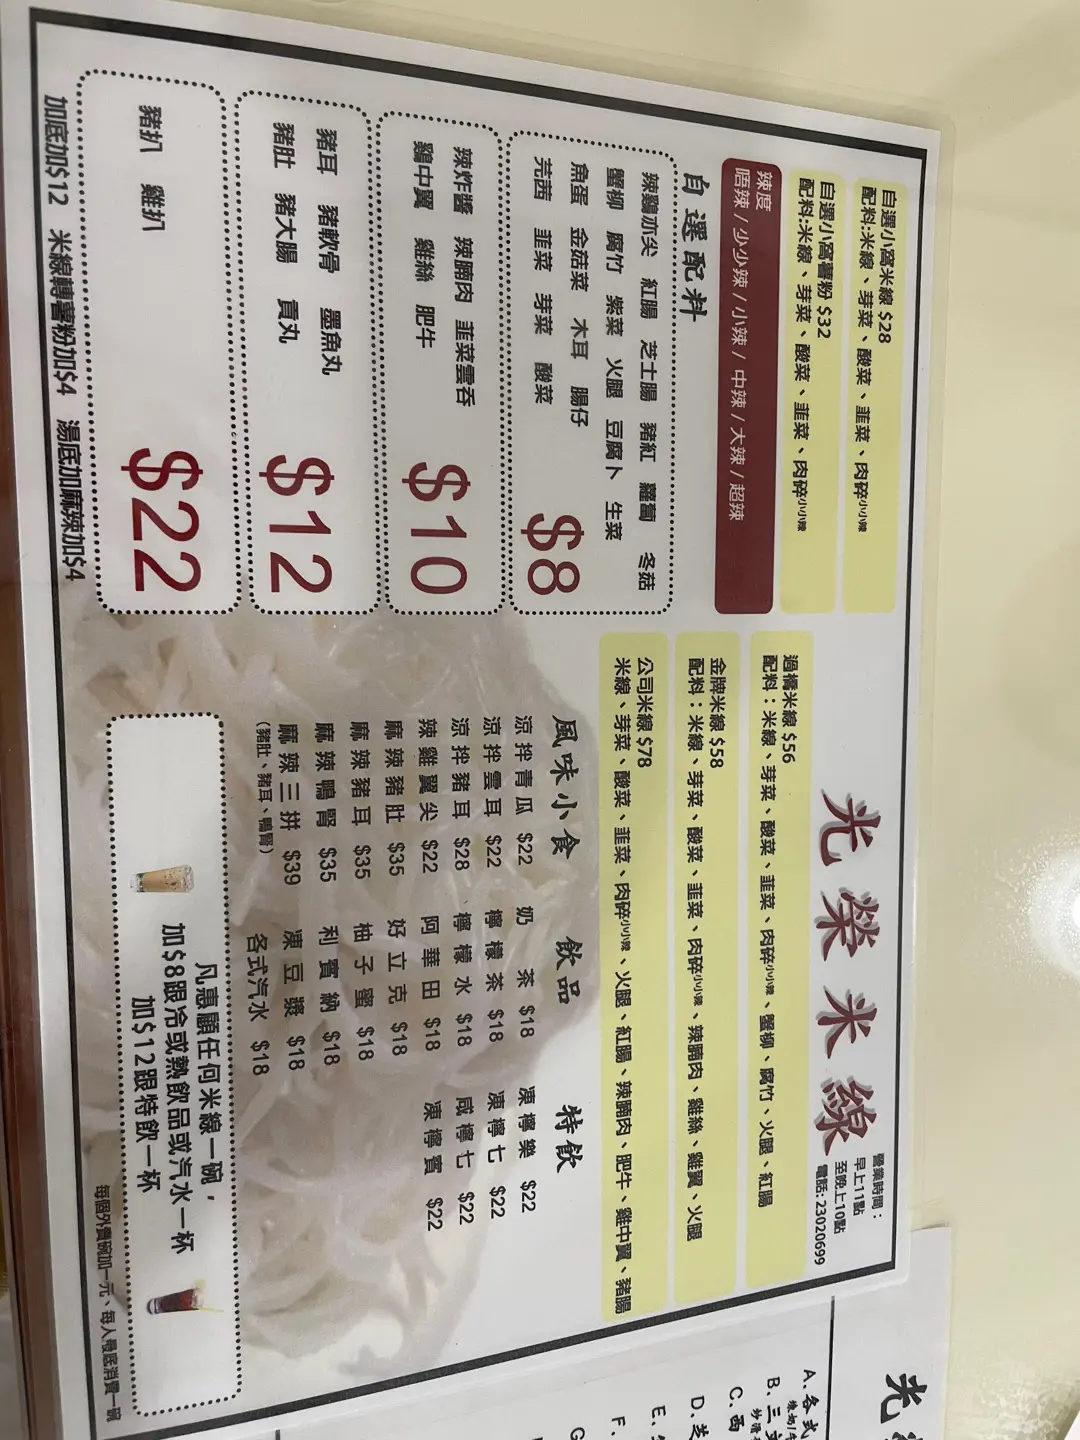 光榮米線
營業時間：
早上11點
至晚上10點
電話: 23020699
自選小窩米線 $28
配料:米線、芽菜、酸菜、韮菜、肉碎小小辣
自選小窩薯粉 $32
配料:米線、芽菜、酸菜、韮菜、肉碎小小辣
辣度
唔辣 / 少少辣 / 小辣 / 中辣 / 大辣 / 超辣
自選配料
辣鷄亦尖 紅腸 芝士腸 豬紅 蘿蔔 冬菇
蟹柳 腐竹 紫菜 火腿 豆腐卜 生菜
魚蛋 金菇菜 木耳 腸仔
芫茜 韮菜 芽菜 酸菜
$8
辣炸醬 辣腩肉 韮菜雲吞
鷄中翼 雞絲 肥牛
$10
豬耳 豬軟骨 墨魚丸
豬肚 豬大腸 貢丸
$12
豬扒 雞扒
$22
加底加$12 米線轉薯粉加$4 湯底加麻辣加$4
過橋米線 $56
配料：米線、芽菜、酸菜、韮菜、肉碎小小辣、蟹柳、腐竹、火腿、紅腸
金牌米線 $58
配料：米線、芽菜、酸菜、韮菜、肉碎小小辣、辣腩肉、雞絲、雞翼、火腿
公司米線 $78
米線、芽菜、酸菜、韮菜、肉碎小小辣、火腿、紅腸、辣腩肉、肥牛、雞中翼、豬腸
風味小食
涼拌青瓜 $22
涼拌雲耳 $22
涼拌豬耳 $28
辣雞翼尖 $22
麻辣豬肚 $35
麻辣豬耳 $35
麻辣鴨腎 $35
麻辣三拼 $39
(豬肚、豬耳、鴨腎)
飲品
奶茶 $18
檸檬茶 $18
檸檬水 $18
阿華田 $18
好立克 $18
柚子蜜 $18
利賓納 $18
凍豆漿 $18
各式汽水 $18
特飲
凍檸樂 $22
凍檸七 $22
咸檸七 $22
凍檸賓 $22
凡惠顧任何米線一碗，
加$8跟冷或熱飲品或汽水一杯
加$12跟特飲一杯
每個外賣碗加一元、每人最底消費一碗
光
A. 各式
B. 三
C. 西
D. 芝
E.
F.
G